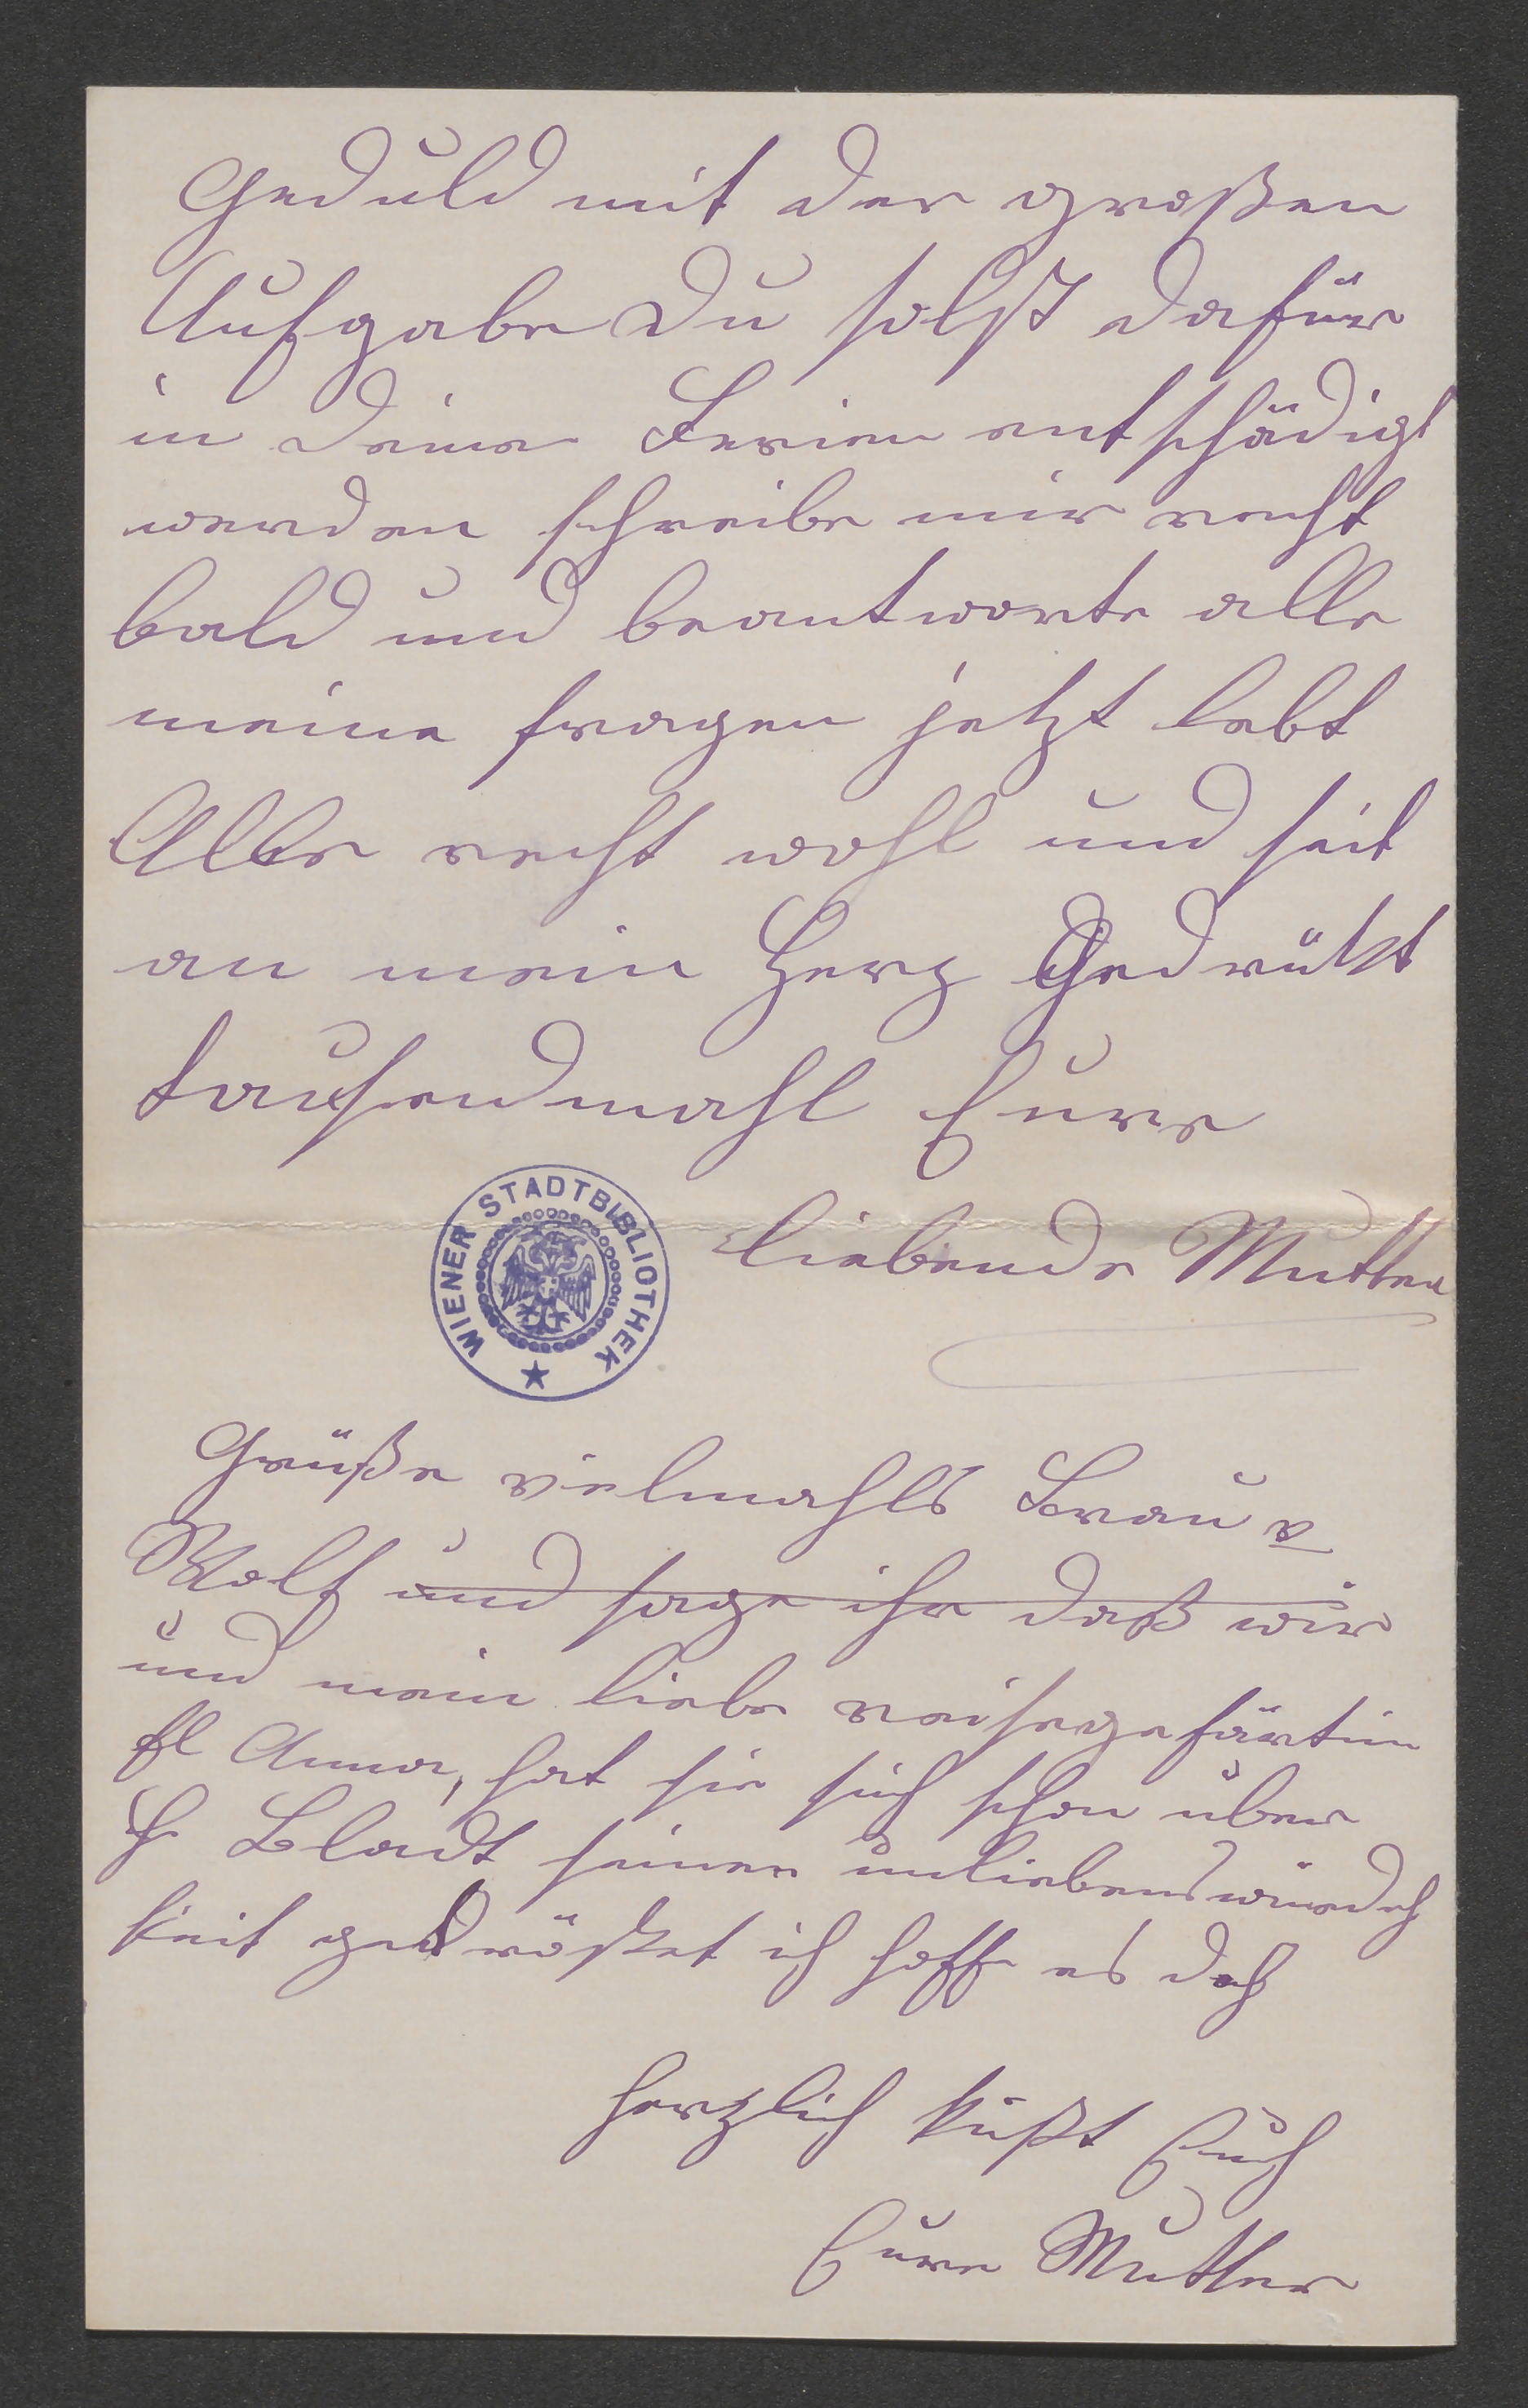 Geduld mit der großen
Aufgabe Du solst dafür
in deine Ferien entschädigt
werden schreibe mir recht
bald und beantworte alle
meine fragen jetzt lebt
Alle recht wohl und seit
an mein Herz Gedrükt
tausendmahl Eure
liebende Mutter
WIENER STADTBIBLIOTHEK
Grüße vielmahls Frau v
Wolf und sage ihr daß wir
und mein liebe reisegefärtin
fl Anna, hat sie sich schon über
H Bladt seiner unliebenswürdich
keit getröstet ich hoffe es doch
herzlich küßt Euch
Eure Mutter